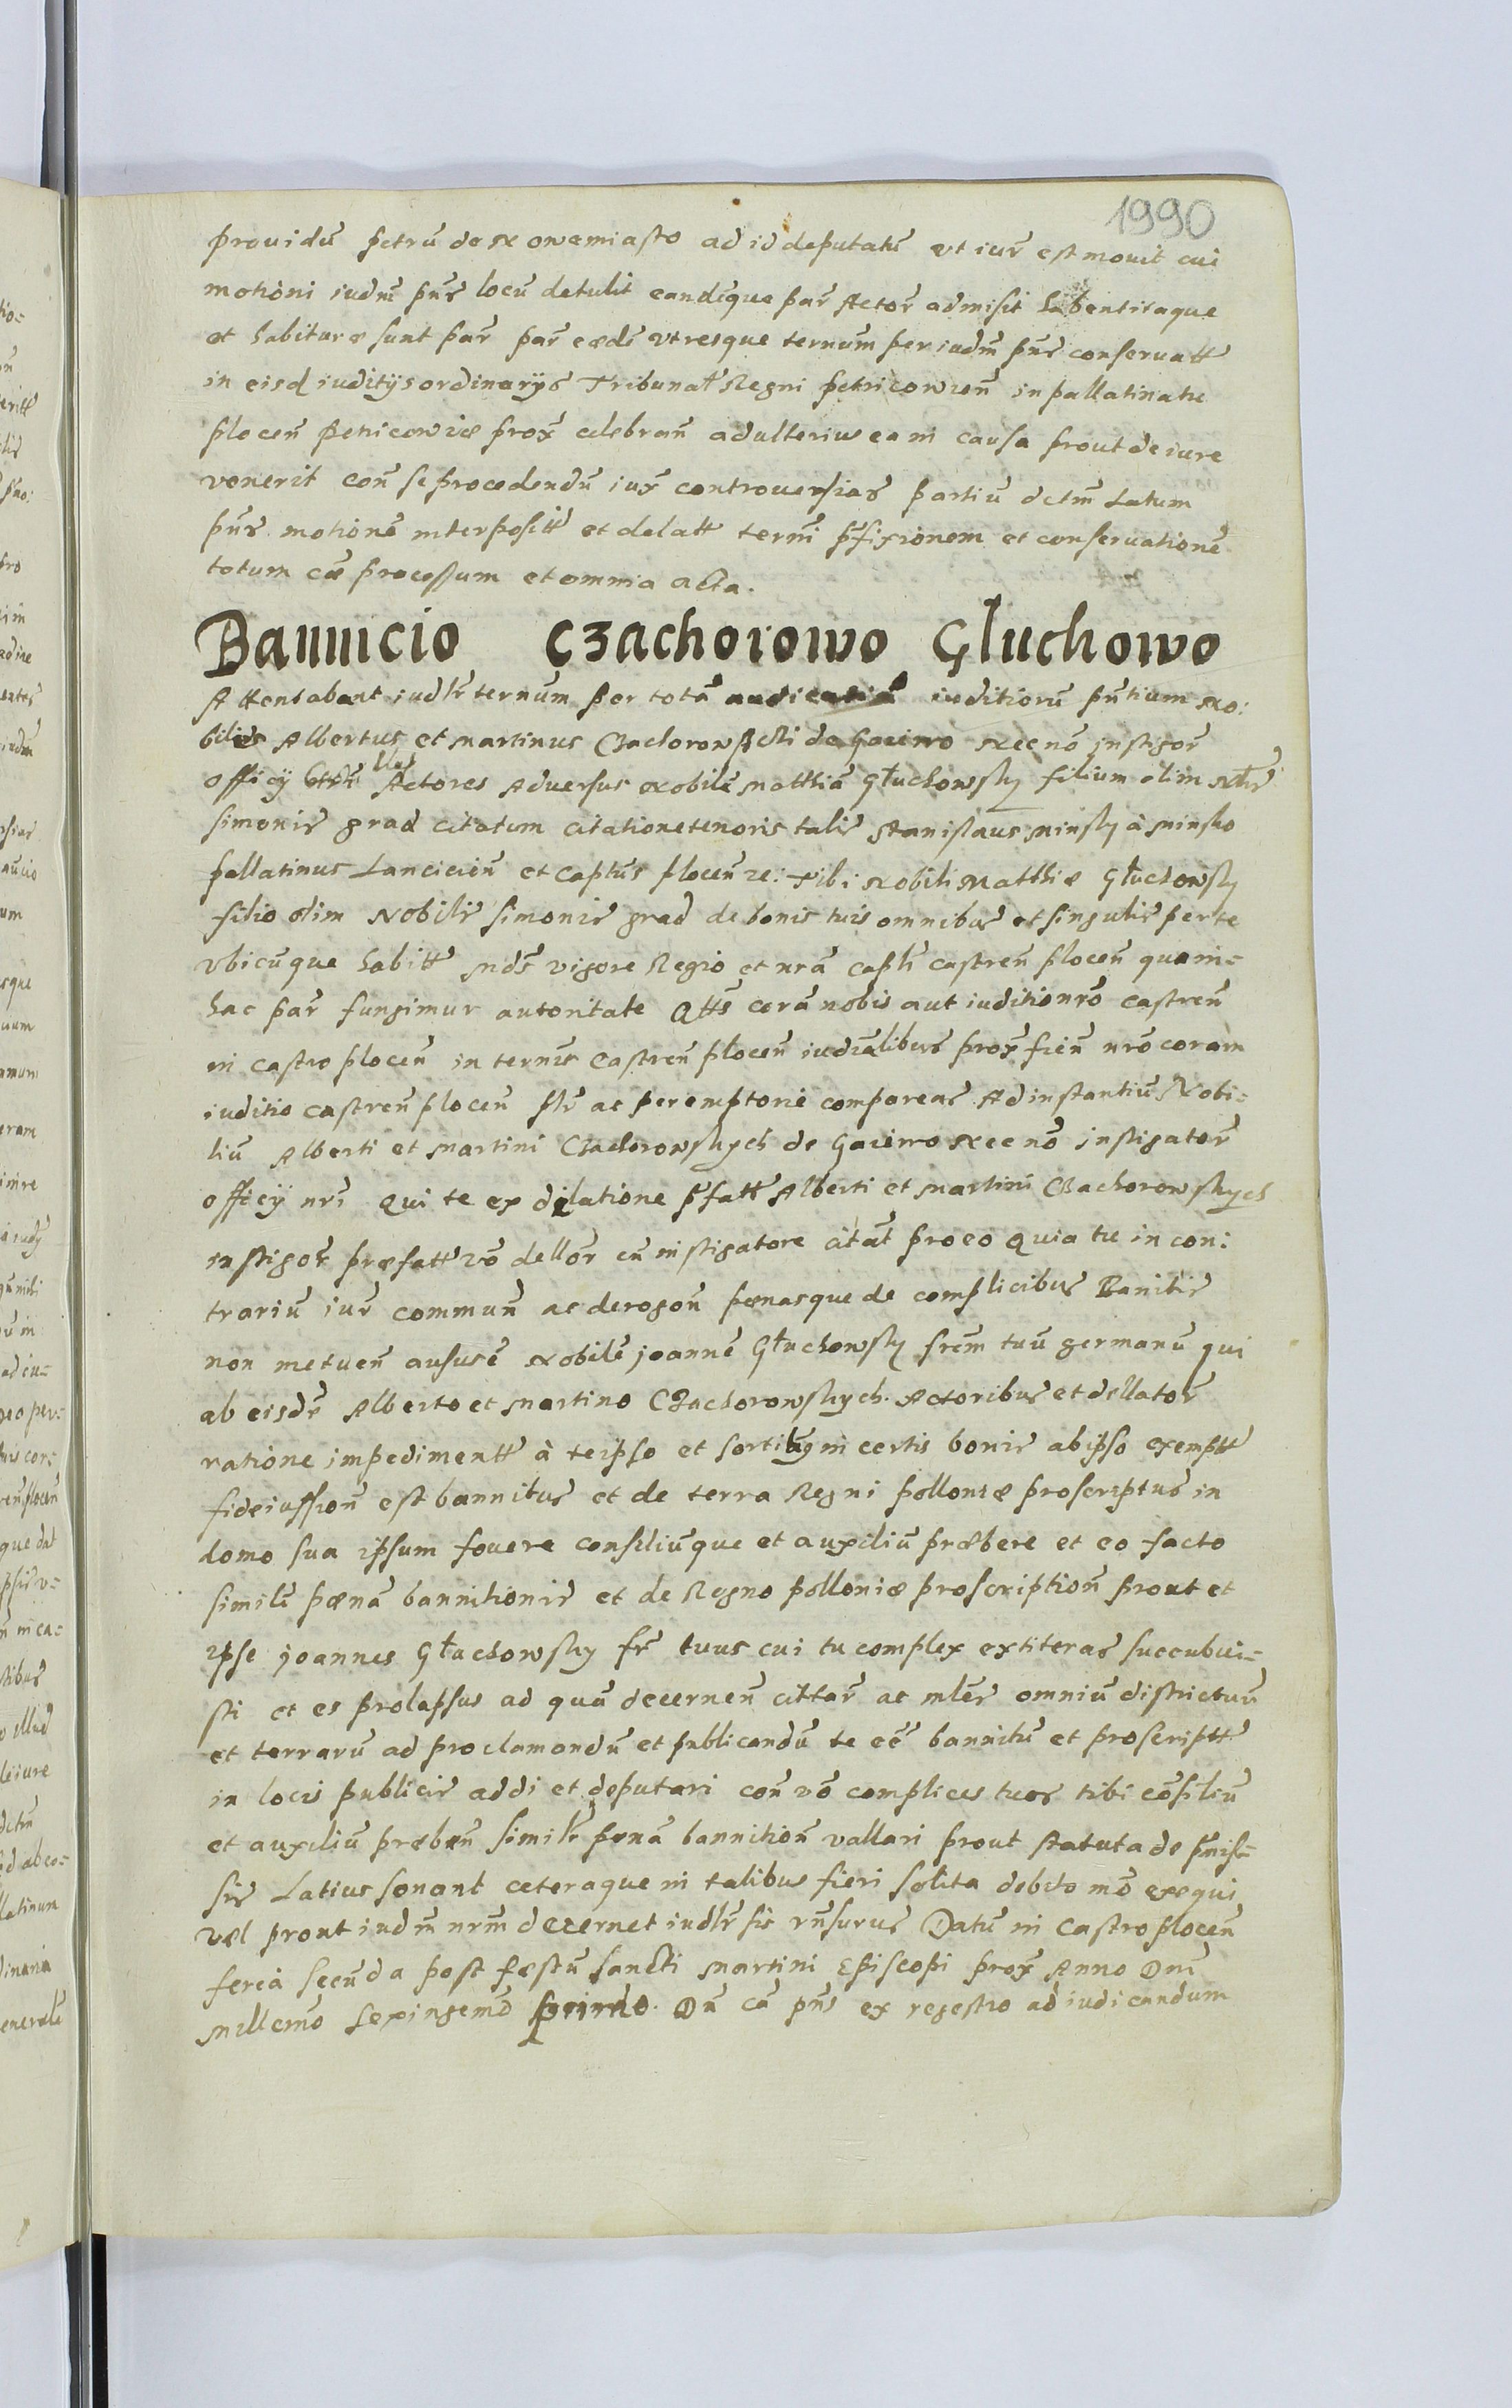 1990
prouidũ petrũ de Nowemiasto ad id deputatũ vt iur̃ est mouit cui
motioni iudm̃ pñs locũ detulit eandẽque par̃ Actor̃ admisit habentiraque
et habituræ sunt par̃ par̃ eædẽ vtresque ternum per iudm̃ pñs conseruatt
in eisd iuditijs ordinarijs Tribunał Regni petricowień in pallatinatu
płoceń petricowiæ prox̃ celebrań ad ulterius ea in causa prout de iure
venerit coñ se procedendũ iux̃ controuersias partiũ dctm̃ Latum
pñs motionẽ interpositt et delatt termĩ pfixionem et conseruationẽ
totum cæ processum et omnia acta.
Bannicio Czachorowo Głuchowo
Attentabant iudlr̃ ternum per totã audientiã iuditiorũ pñtium No:
biles Albertus et Martinus Czachorowscÿ de Gacimo Necnõ instigor̃
officÿ Actores Aduersus Nobilẽ Matthiã Głuchowsky filium olim Nblis
Simonis grad citatum citatione tenoris talis Stanisłaus Minsky à Minsko
pallatinus Lancicień et capłus płoceń ze: Tibi Nobili Matthiæ Głuchowsky
filio olim Nobilis Simonis grad de bonis tuis omnibus et singulis per te
vbicũque habitt Mds̃ vigore Regio et nrã capłi castreń płoceń qua in=
hac par̃ fungimur autoritate Qtts̃ corã nobis aut iuditio nrõ castreń
in castro płoceń in ternis Castreń płoceń iudiałibus prox̃ fień nrõ coram
iuditio castreń płoceń plr̃ ac peremptorie compareas Ad instantiũ Nobi=
liũ Alberti et Martini Czachorowskych de Gacimo Necnõ instigator̃
officÿ nrĩ Qui te ex dilatione pfatt Alberti et Martini Czachorowskych
instigor̃ præfatt võ dellor̃ cũ instigatore citat pro eo Quia tu in con:
trariũ iur̃ communũ ac derogoñ pænasque de complicibus Banitis
non metueñ ausus ẽ Nobilẽ Joannẽ Głuchowsky frẽm tuũ germanũ qui
ab eisdẽ Alberto et Martino Czachorowskych Actoribus et dellator̃
ratione impedimentt à te ipso et in certis bonis ab ipso exemptt
fideiussioñ est bannitus et de terra Regni polloniæ proscriptus in
domo sua ipsum fouere consiliũque et auxiliũ præbere et eo facto
similẽ pænã bannitionis et de Regno polloniæ proscriptioñ prout et
ipse Joannes Głuchowsky fr̃ tuus cui tu complex extiteras succubui=
sti et es prolapsus ad quã decerneñ cittar̃ ac mlẽr omniũ districtuũ
et terrarũ ad proclamandũ et publicandũ te eẽ bannitũ et proscriptt
in locis publicis addi et deputari coñ võ complices tuos tibi cõsiliũ
et auxiliũ præbeñ similẽ pænã bannitioñ vallari prout statuta de pmis=
sis Latius sonant ceteraque in talibus fieri solita debito mõ exequi
vel prout iudm̃ nrm̃ decernet iudlr̃ sis rñsurus Datũ in Castro płoceń
feria secũda post fæstũ Sancti Martini Episcopi prox̃ Anno Dnĩ
Millemõ Sexingemõ primo. Dũ cã pñs ex regestro ad iudicandum